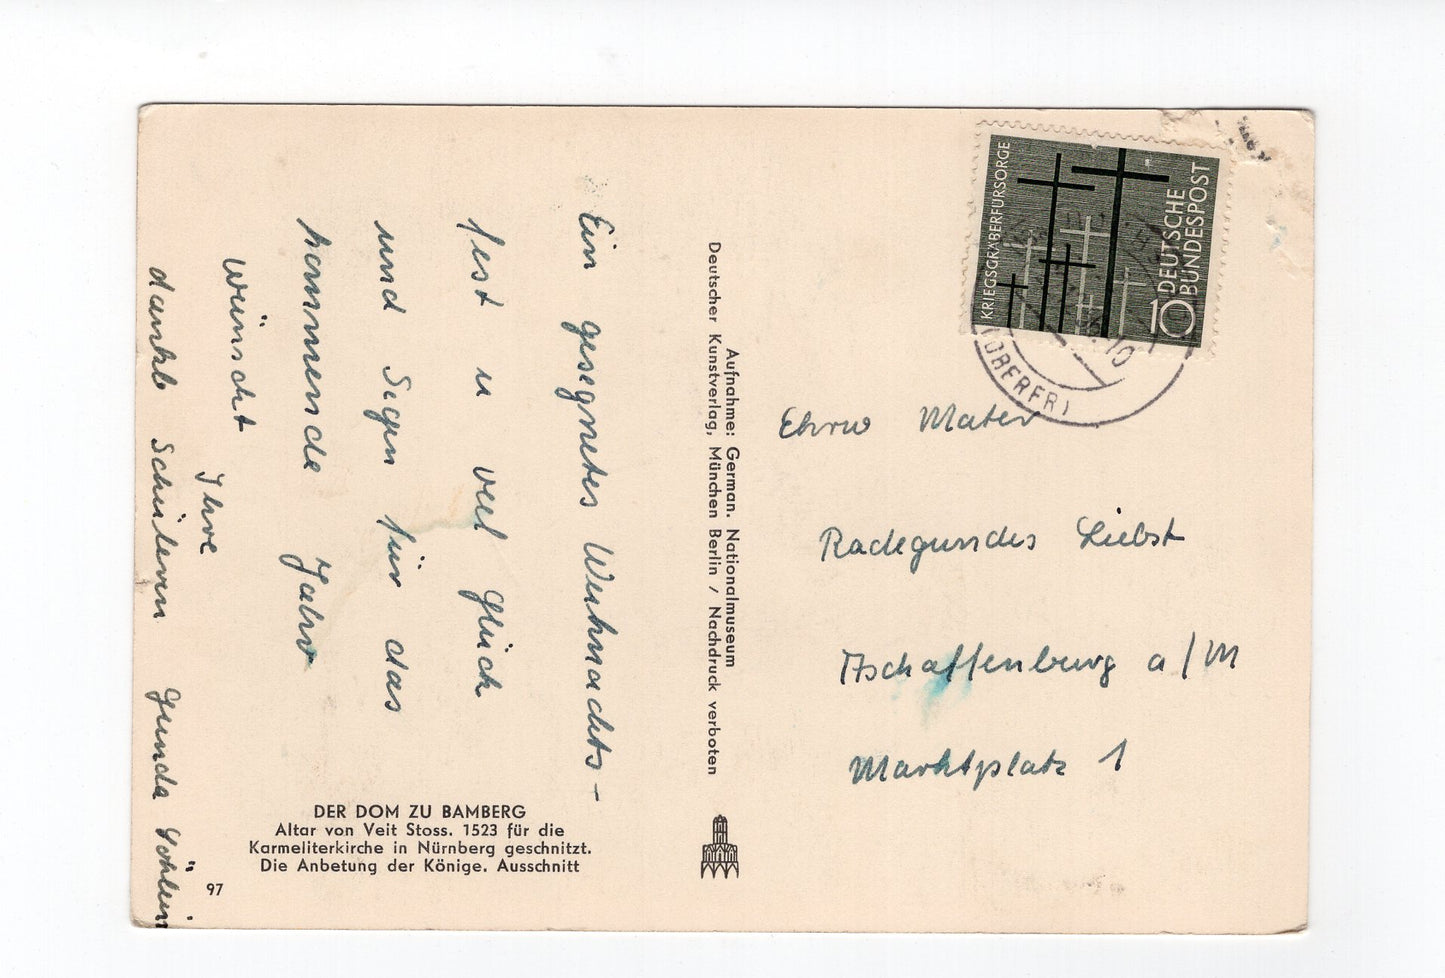 Ein gesegnetes Weihnachts-
fest u viel Glück
und Segen für das
kommende Jahr
wünscht
Ihre
dankb Schülerin Gunda
DER DOM ZU BAMBERG
Altar von Veit Stoss. 1523 für die
Karmeliterkirche in Nürnberg geschnitzt.
Die Anbetung der Könige. Ausschnitt
97
Aufnahme: German. Nationalmuseum
Deutscher Kunstverlag, München Berlin / Nachdruck verboten
KRIEGSGRÄBERFÜRSORGE
10 DEUTSCHE
BUNDESPOST
(OBERFR)
10
Ehrw Mater
Radegundes Liebst
Aschaffenburg a/M
Marktplatz 1